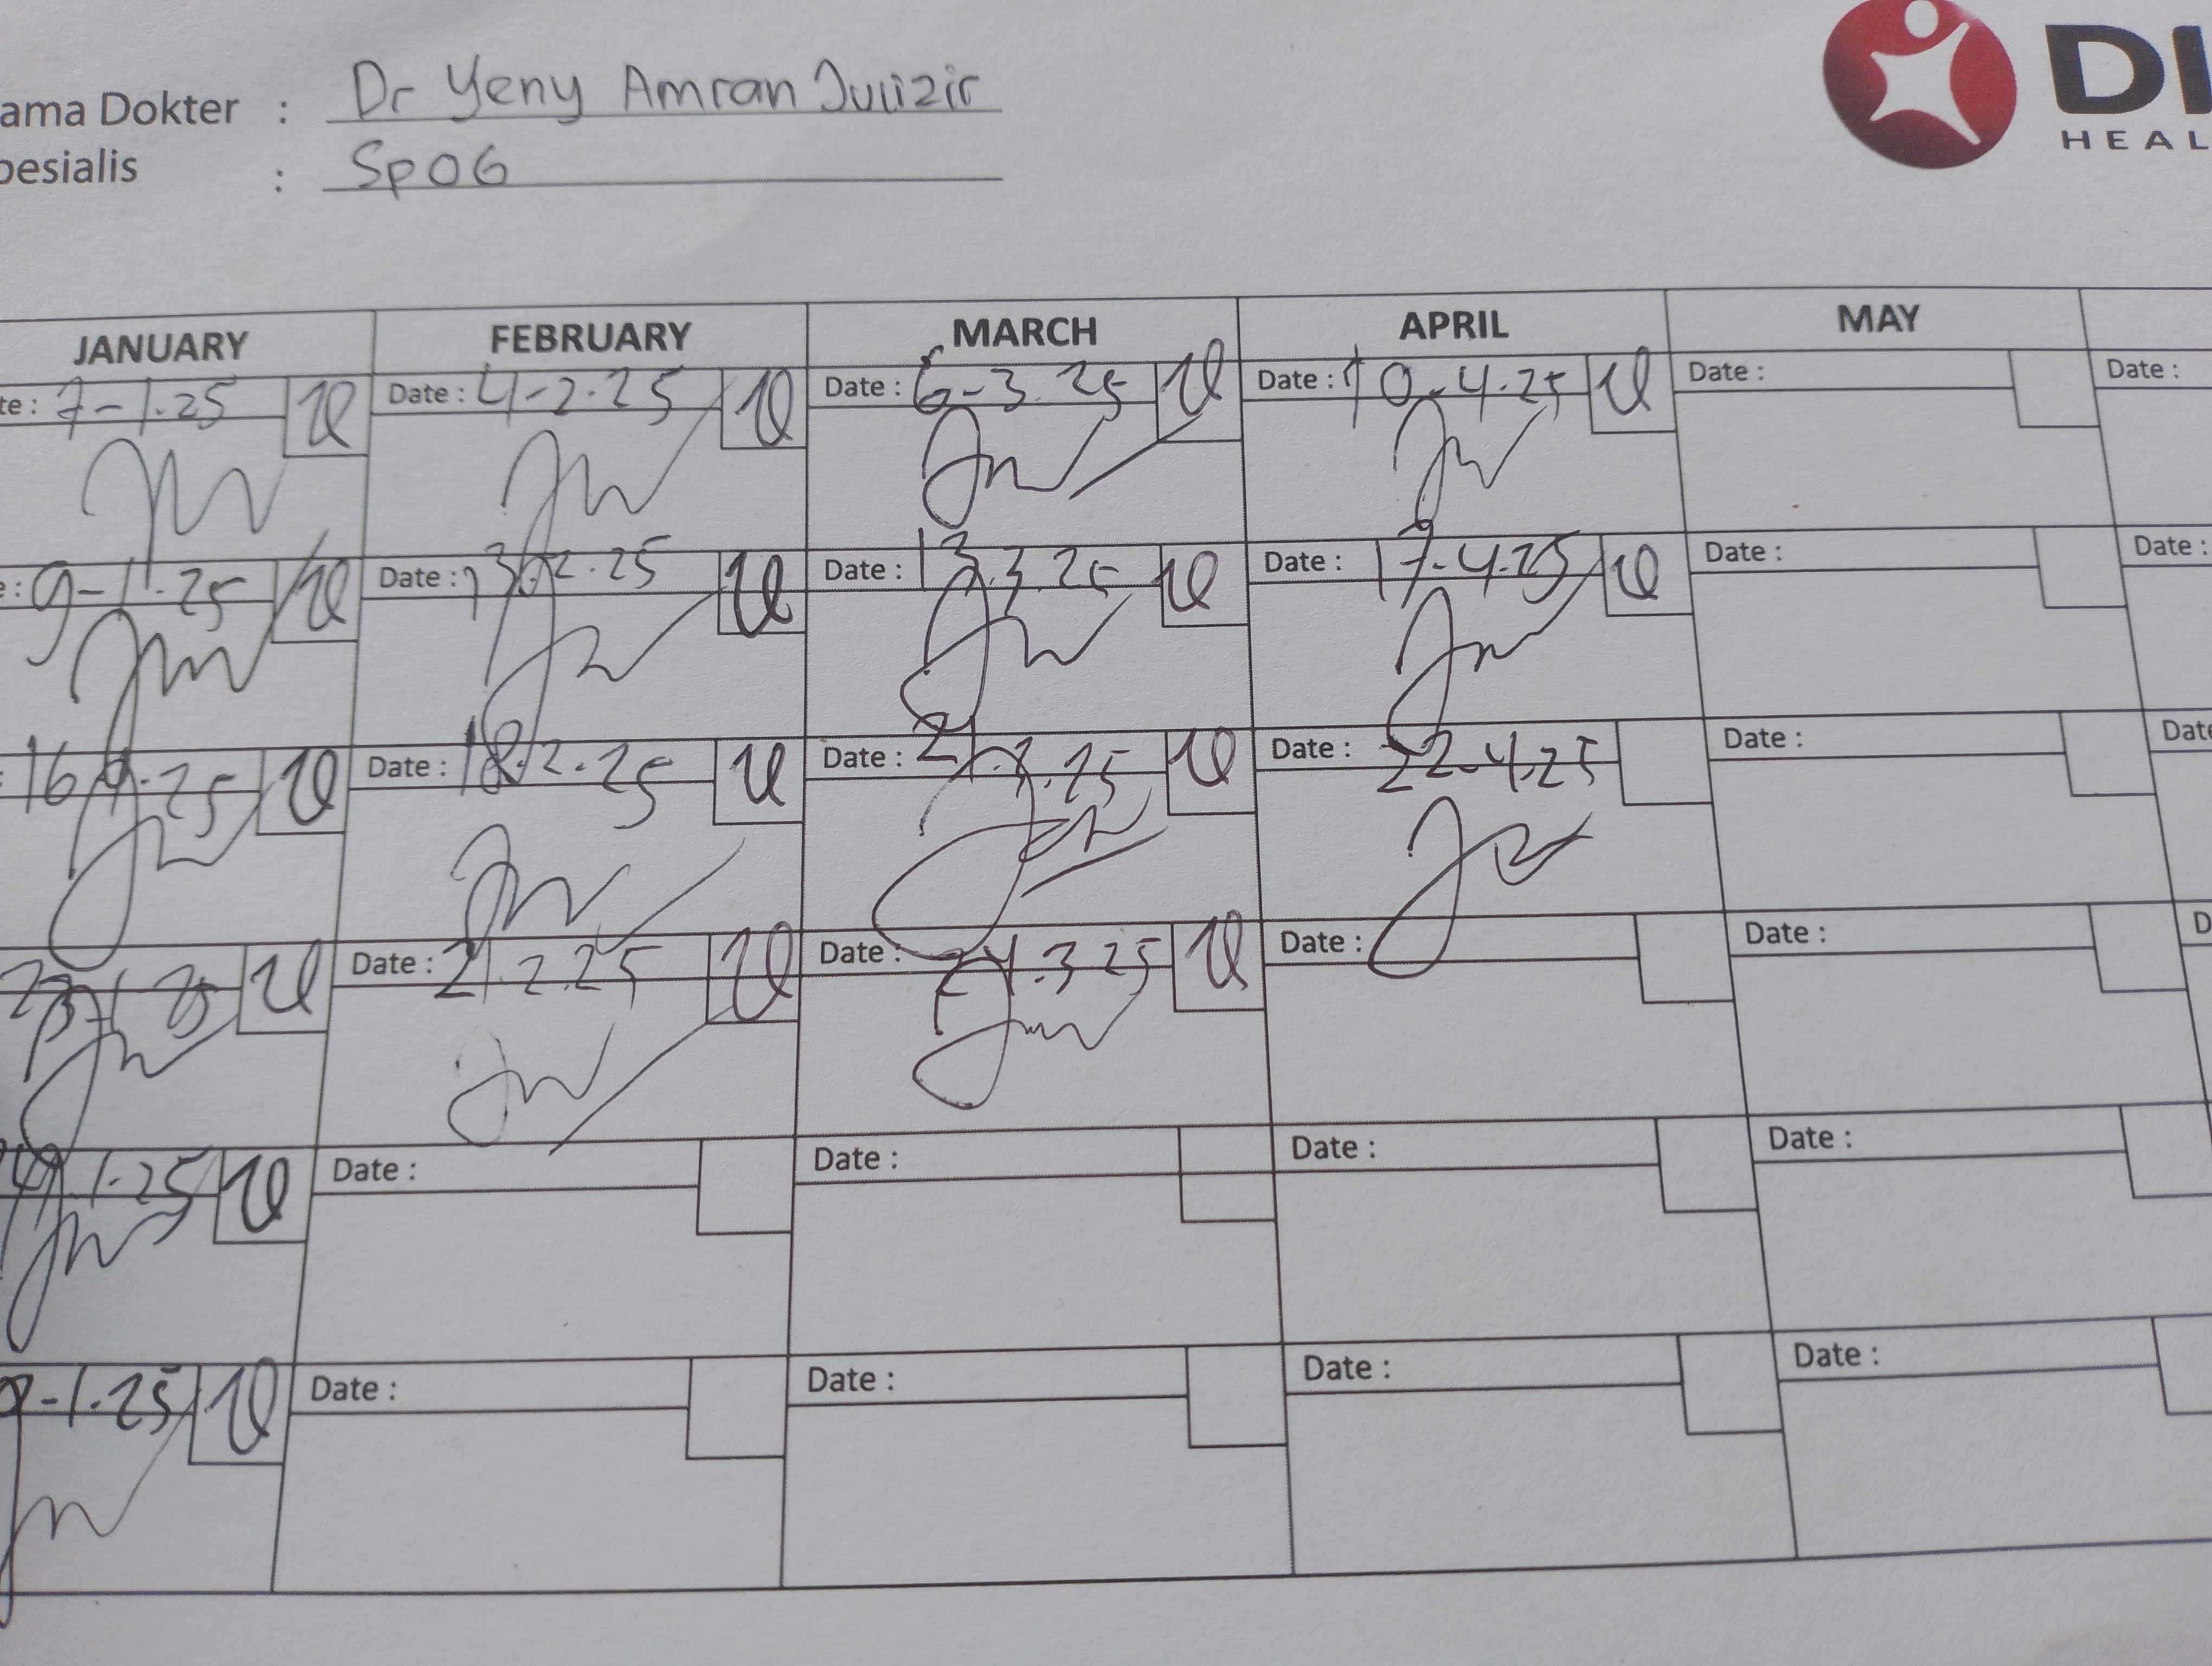 ama Dokter : Dr Yeny Amran Julizir
pesialis : SpOG
DI
HEAL
JANUARY FEBRUARY MARCH APRIL MAY
te: 7-1.25 Date : 4-2.25 Date : 6-3.25 Date : 10-4.25 Date : Date :
e: 9-1.25 Date : 13.2.25 Date : 13.3.25 Date : 17-4.25 Date : Date :
: 16.1.25 Date : 18.2.25 Date : 21.3.25 Date : 22-4.25 Date : Date
23-1.25 Date : 21.2.25 Date : 24.3.25 Date : Date : D
1.25 Date : Date : Date : Date :
9-1.25 Date : Date : Date : Date :